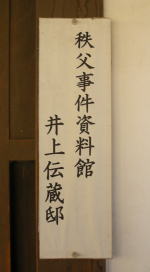 秩父事件資料館
井上伝蔵邸